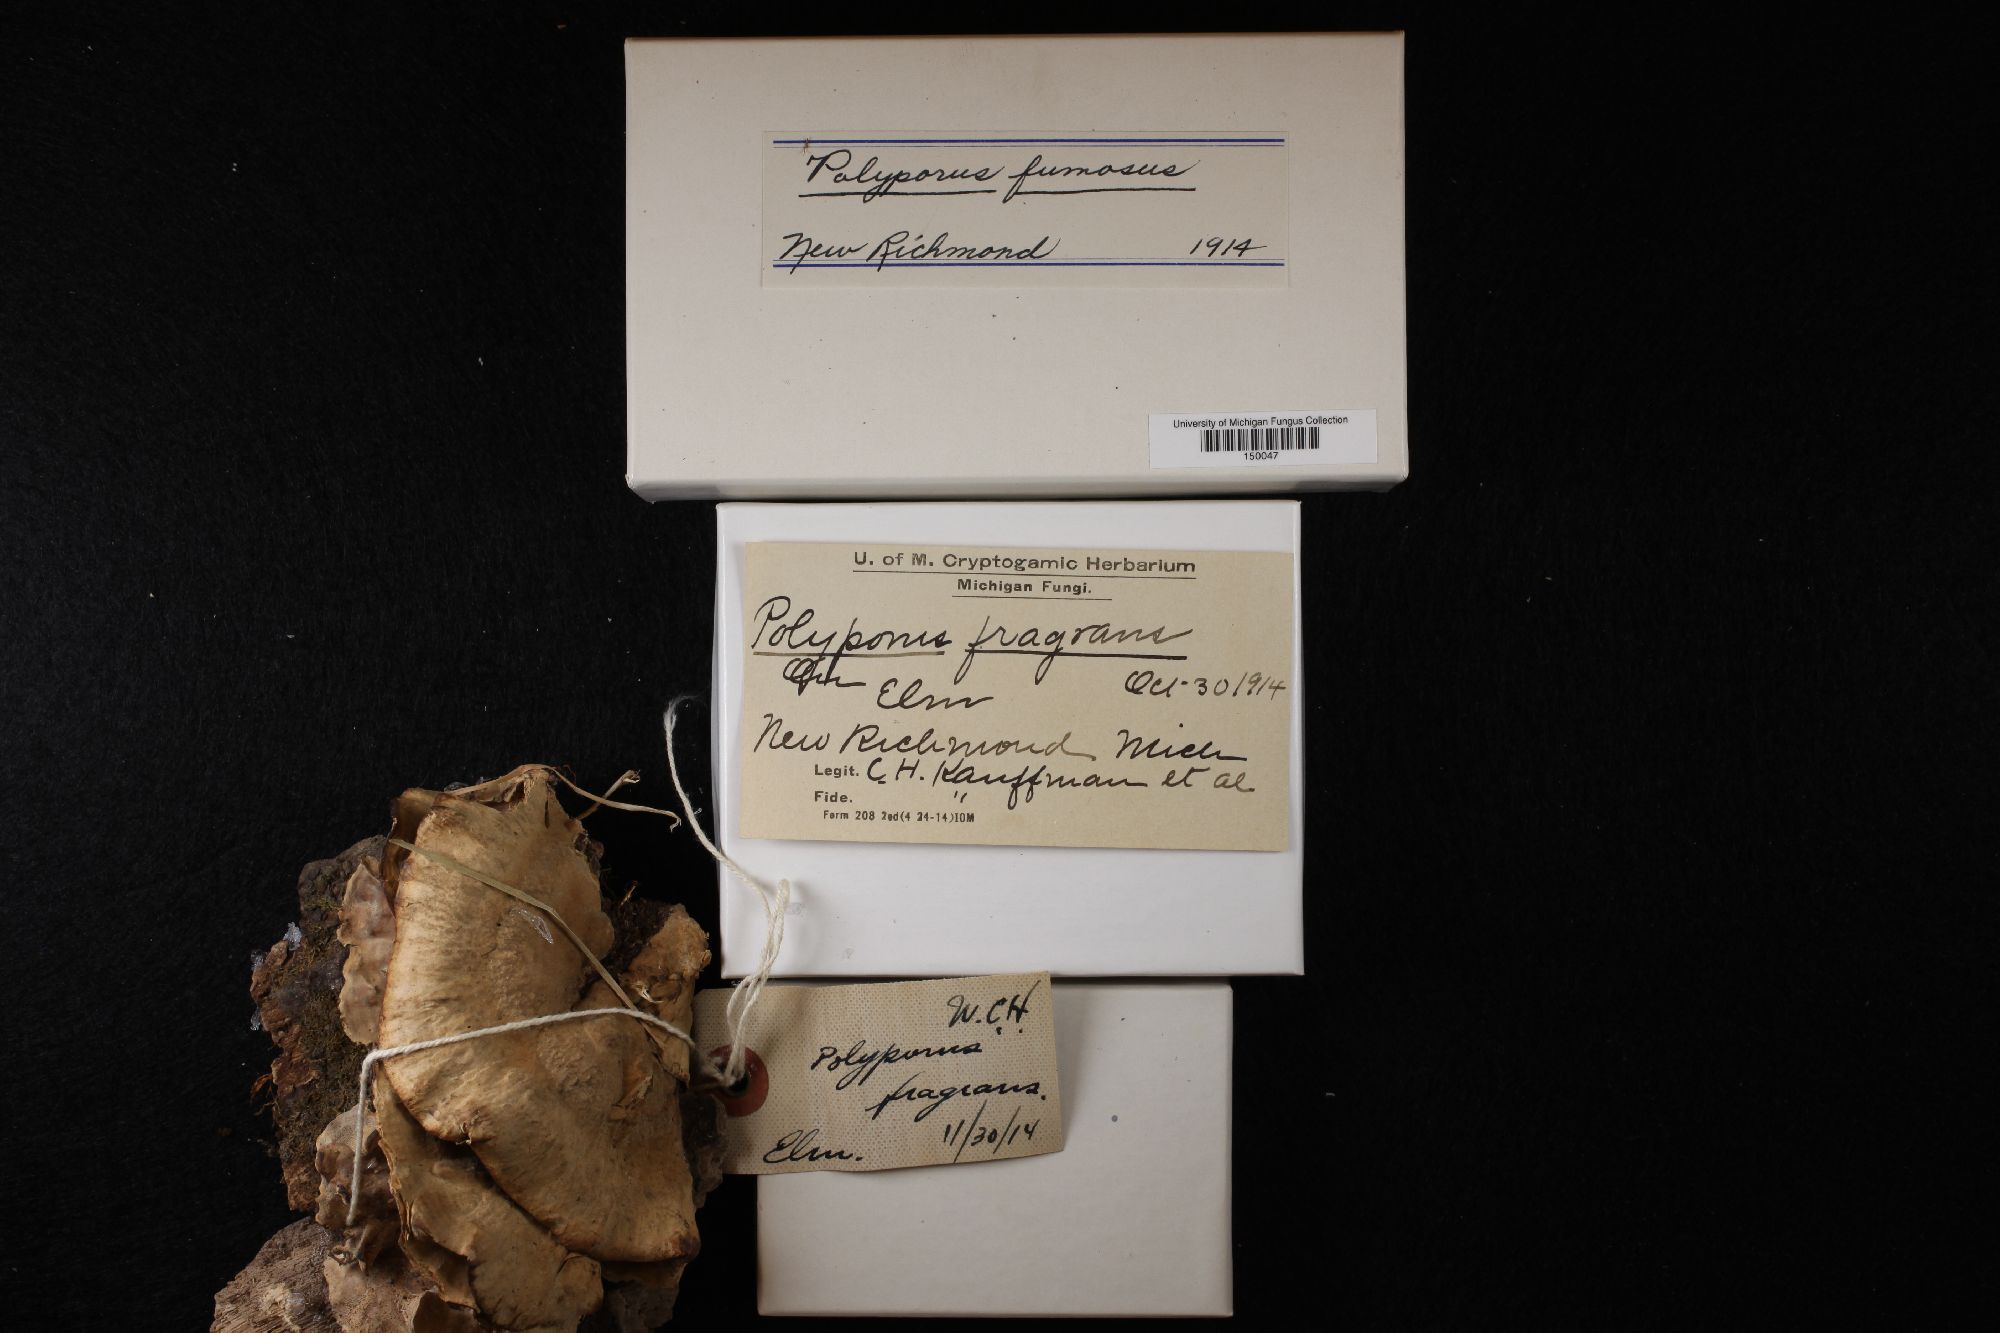 Polyporus fumosus
New Richmond 1914
University of Michigan Fungus Collection
150047
U. of M. Cryptogamic Herbarium
Michigan Fungi.
Polyporus fragrans
On Elm Oct-30 1914
New Richmond Mich
Legit. C.H. Kauffman et al.
Fide. "
Form 208 2ed(4 24-14)10M
W.C.H.
Polyporus
fragrans.
11/30/14
Elm.